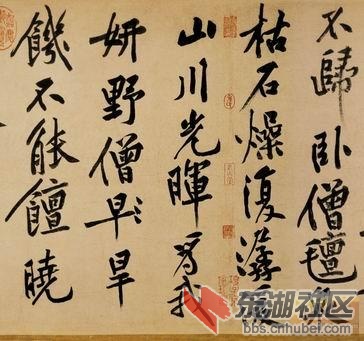 不歸臥僧氊泉
枯石燥復潺湲
山川光暉為我
妍野僧早旱
饑不能饘曉
东湖社区
bbs.cnhubei.com